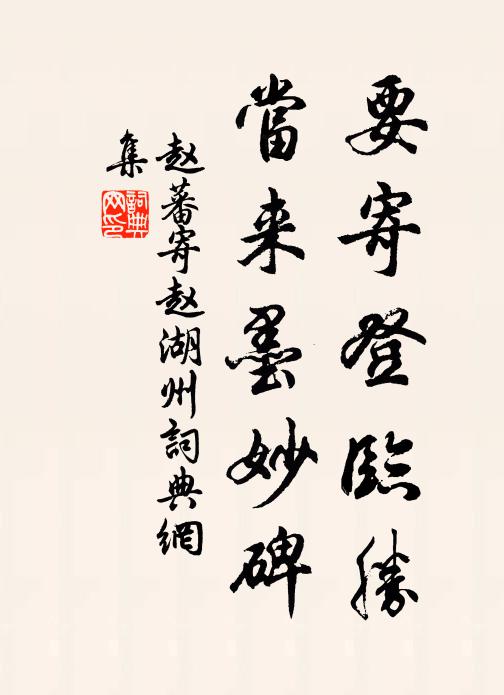 要寄登臨勝
當来墨妙碑
赵蕃寄赵湖州詞典網
集
詞典網印